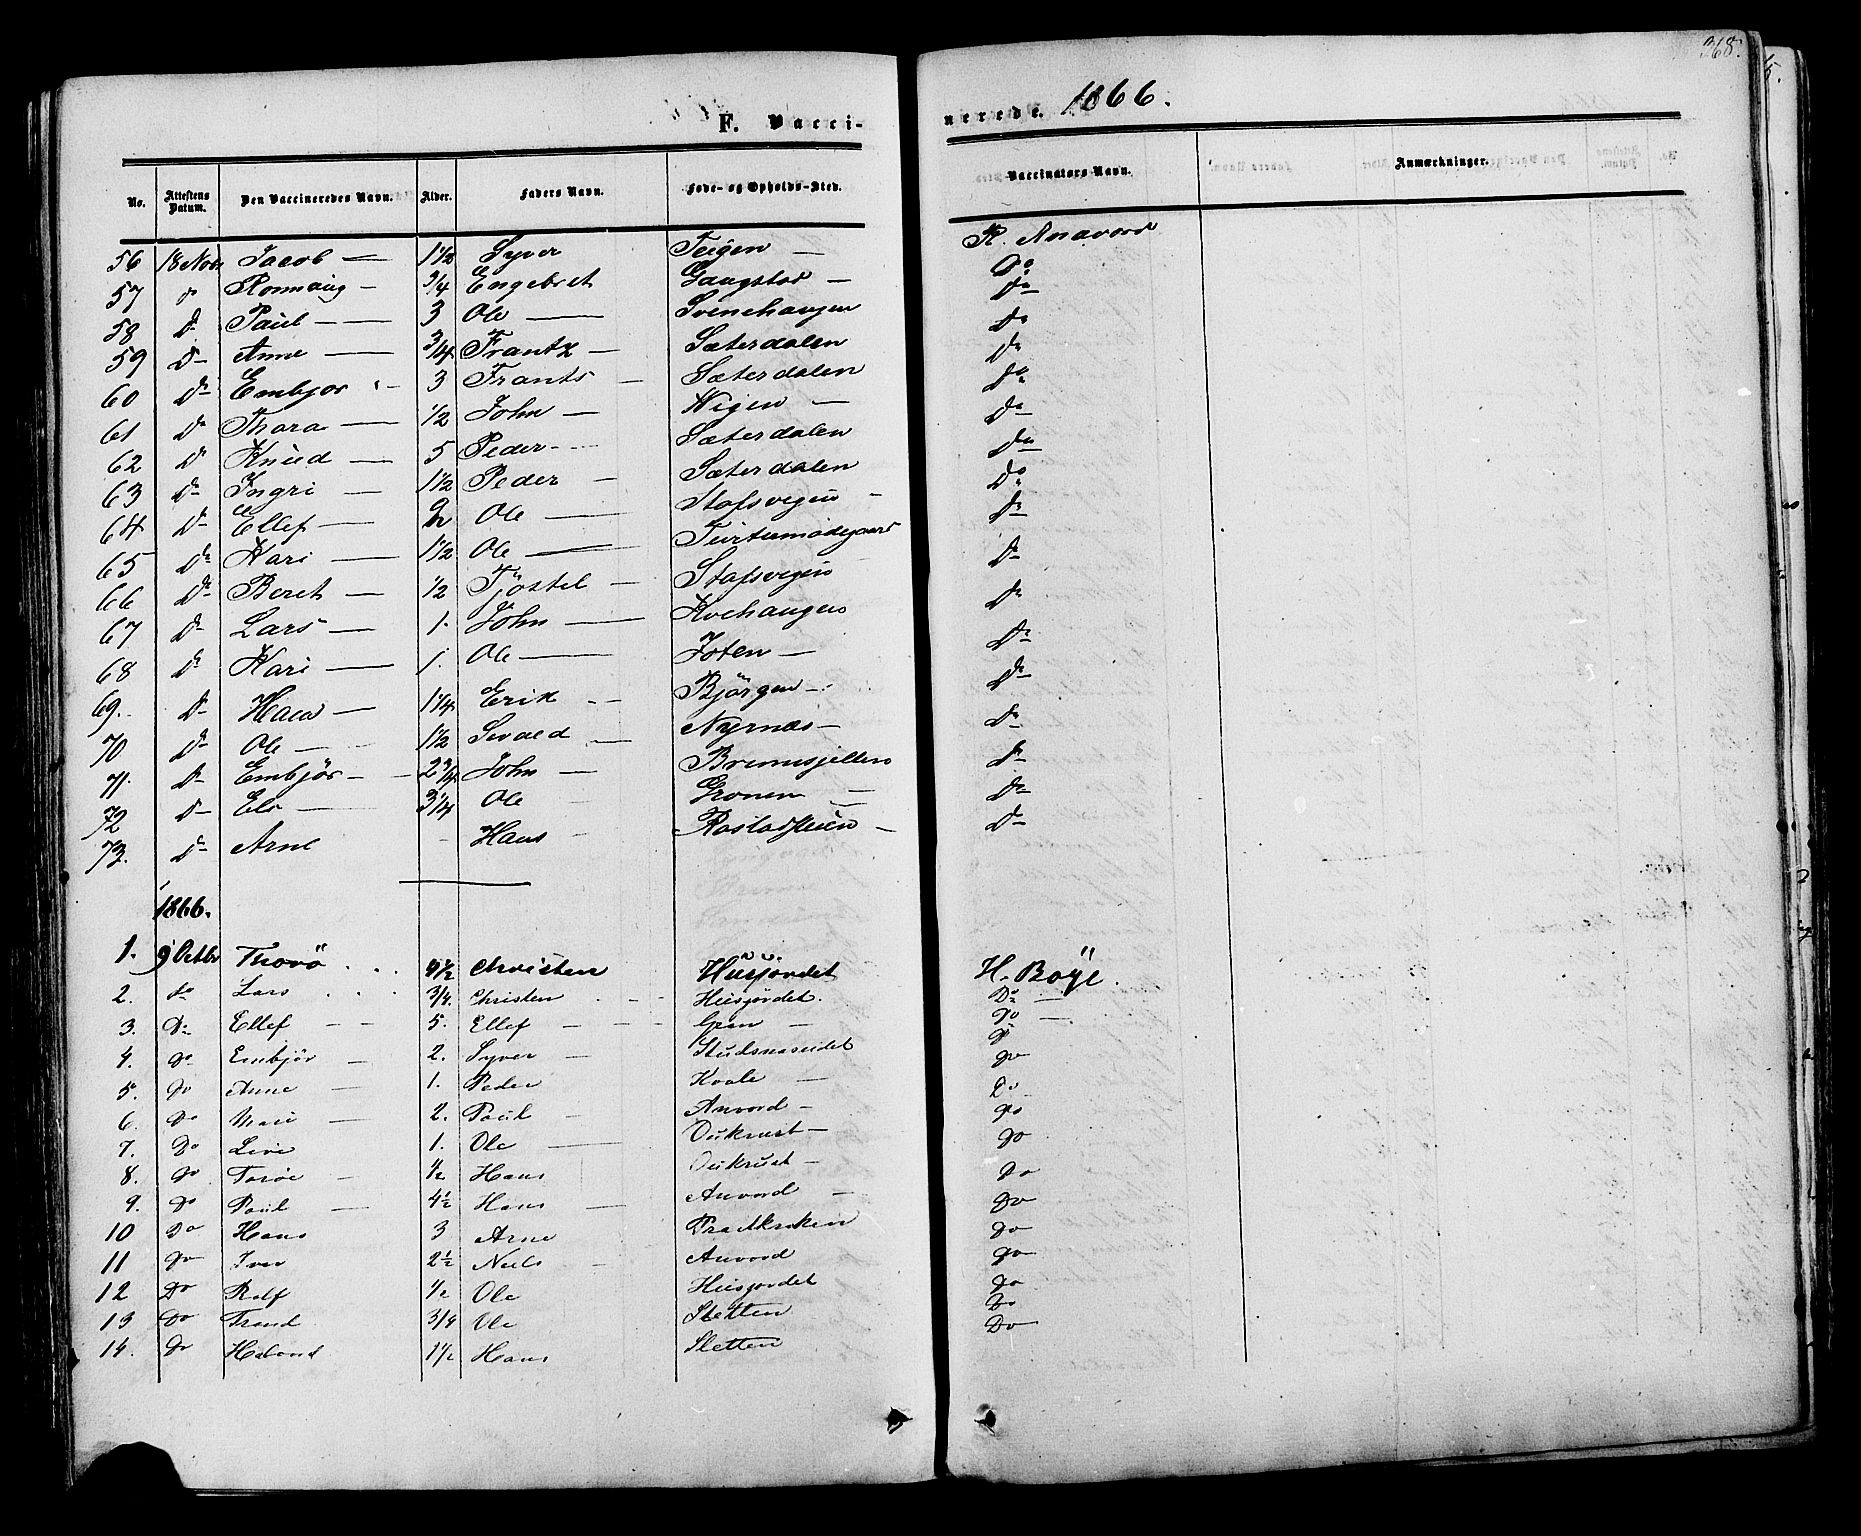 368.
F. Vaccinerede. 1866.
No. Attestens Datum. Den Vaccineredes Navn. Alder. Faders Navn. Føde- og Opholds-Sted. Vaccinators Navn. Anmærkninger.
56 18 Novbr Jacob — 1½ Syver Teigen — R. Anavord
57 Do Ronnaug — 3/4 Engebret Gaugstad — Do
58 Do Paul — 3 Ole — Svenehaugen Do
59 Do Anne — 3/4 Frantz — Sæterdalen Do
60 Do Embjør — 3 Frants — Sæterdalen Do
61 Do Thora — 1/2 John — Wigen — Do
62 Do Knud — 5 Peder — Sæterdalen Do
63 Do Ingri — 1½ Peder — Sæterdalen Do
64 Do Ellef — 2 Ole — Stafsvegen — Do
65 Do Kari — 1½ Ole — Do
66 Do Beret — 1/2 Tjøstel — Stafsvegen Do
67 Do Lars — 1. John — Kvehaugen Do
68 Do Kari — 1. Ole — Joten — Do
69. Do — 1¼ Erik Bjørgen — Do
70 Do Ole — 1½ Sivald — Nyrnæs — Do
71. Do Embjør — 2 3/4 John — Do
72 Do Els — 3¼ Ole Gronen — Do
73. Do Arne Hans — Do
1866.
1. 9 Octbr Thorö Christen Husjordet H. Boye.
2. do Lars 3/4. Christen Husjordet. Do —
3. Do Ellef — 5. Ellef — — Gran — do —
4. do Embjør — 2. Syver — do
5. do Anne — 1. Peder Kvale — do
6. Do Mari — 2. Poul — Anvord — Do
7. Do Live 1. Ole — Oukrust — do
8. do Toröe — 1/2 Hans Oukrust — do
9. Do Poul — 4½ Hans — Anvord — Do
10 Do Hans 3 Arne do
11 do Iver 2½ Niels Anvord do
12 Do Rolf 1/2 Ole Husjordet do
13 Do Trond 3/4 Ole Sletten do
14. do Halvord 1½ Hans Sletten Do